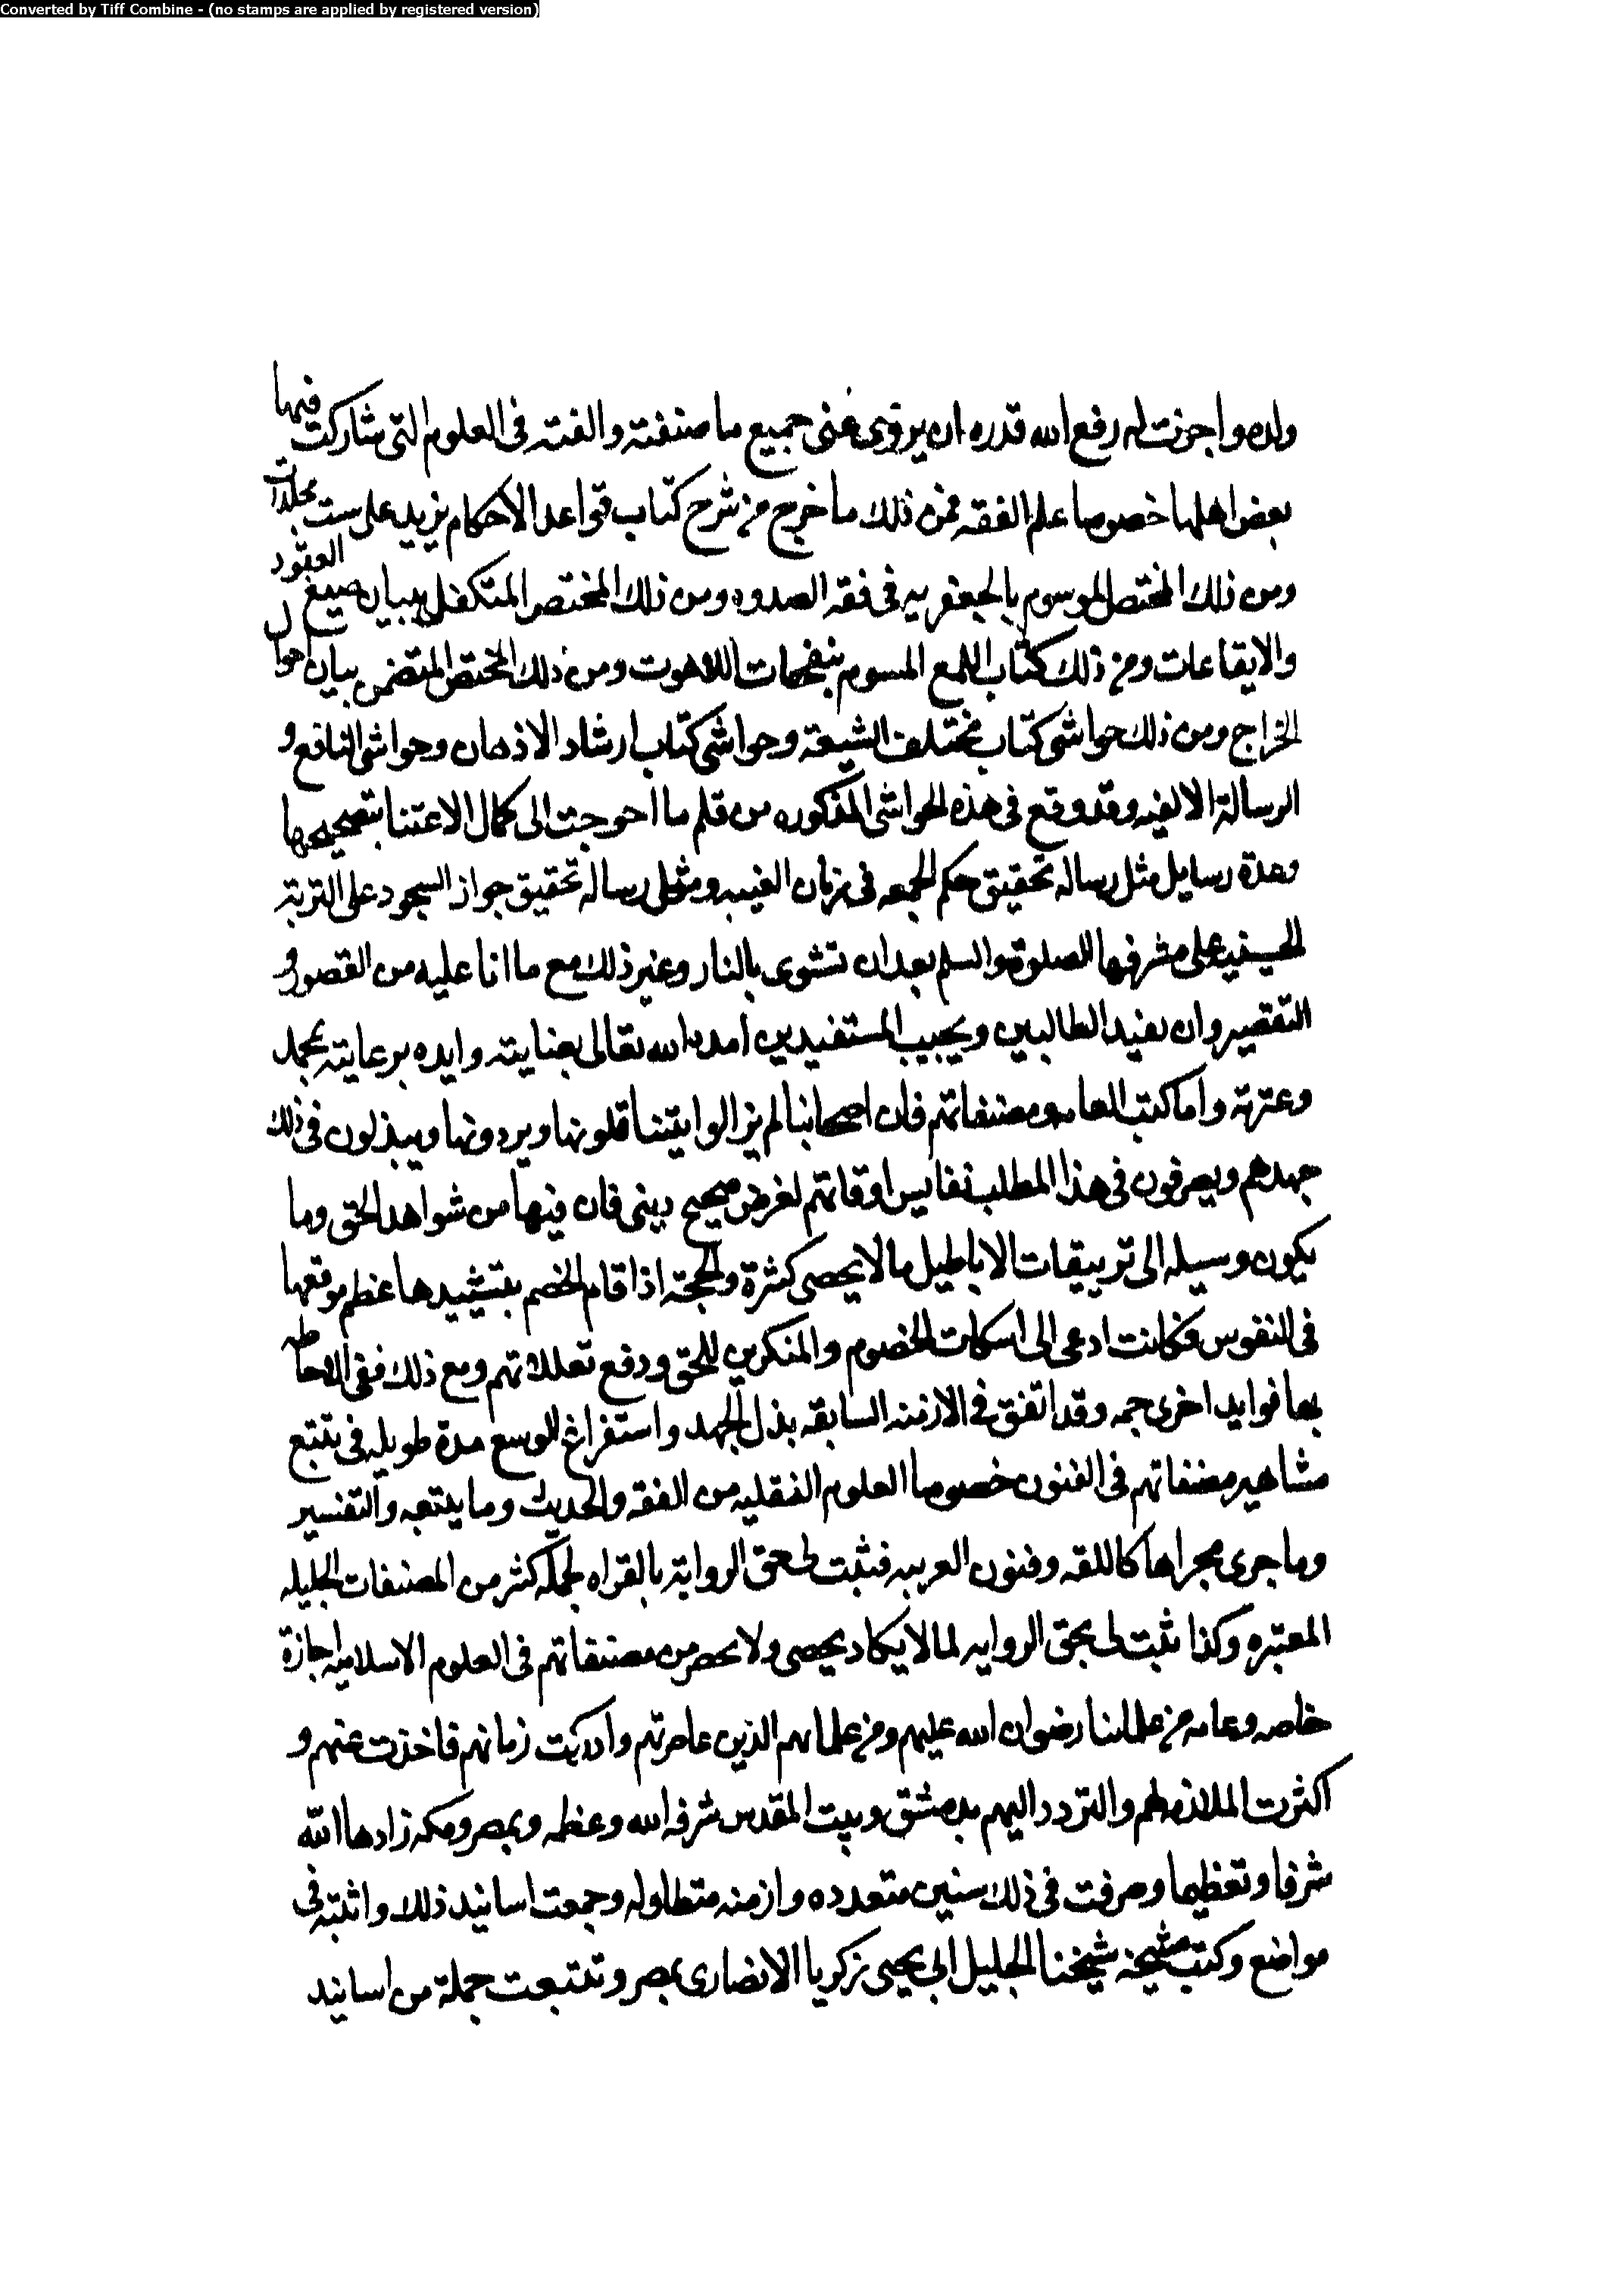 Converted by Tiff Combine - (no stamps are applied by registered version)
ولده واجزت له رفع الله قدره ان يروى عنى جميع ما صنفته والفته فى العلوم التى شاركت فيها
بعض اهلها خصوصا علم الفقه فمن ذلك ما خرج من شرح كتاب قواعد الاحكام يزيد على ست مجلدات
ومن ذلك المختصر الموسوم بالجعفريه فى فقه الصلوه ومن ذلك المختصر المتكفل ببيان صيغ العقود
والايقاعات ومن ذلك كتاب اللمع المسوم بنفحات اللاهوت ومن ذلك المختصر المتضمن بيان احوال
الخراج ومن ذلك حواشى كتاب مختلف الشيعة وحواشى كتاب ارشاد الاذهان وحواشى النافع و
الرسالة الالفيه وقد وقع فى هذه الحواشى المذكوره من قلم ما احوجت الى كمال الاعتنا بتصحيحها
وعدة رسايل مثل رساله تحقيق حكم الجمعه فى زمان الغيبه ومثل رساله تحقيق جواز السجود على التربة
الحسينيه على مشرفها الصلوة والسلم بعد ان تشوى بالنار وغير ذلك مع ما انا عليه من القصور و
التقصير وان يفيد الطالبين ويجيب المستفيدين امده الله تعالى بعنايته وايده برعايته بمحمد
وعترته واما كتب العامه ومصنفاتهم فان اصحابنا لم يزالوا يتناقلونها ويردونها ويبذلون فى ذلك
جهدهم ويصرفون فى هذا المطلب نفايس اوقاتهم لغرض صحيح دينى فان فيها من شواهد الحق وما
يكون وسيله الى تزييفات الاباطيل ما لا يحصى كثرة والحجة اذا قام الخصم بتشييدها عظم موقعها
فى النفوس فكانت ادعى الى اسكات الخصوم والمنكرين للحق ودفع تعللاتهم ومع ذلك ففى الاحاطه
بها فوايد اخرى جمه وقد اتفق فى الازمنه السابقه بذل الجهد واستفراغ الوسع مدة طويله فى تتبع
مشاهير مصنفاتهم فى الفنون خصوصا العلوم النقليه من الفقه والحديث وما يتبعه والتفسير
وما جرى مجراها كاللغه وفنون العربيه فثبت لى حق الرواية بالقراه لجملة كثر من المصنفات الجليله
المعتبره وكذا ثبت لى حق الروايه لما لا يكاد يحصى ولا يحصر من مصنفاتهم فى العلوم الاسلاميه اجازة
خاصه وعامه من علمائنا رضوان الله عليهم ومن علمائهم الذين عاصرتهم وادركت زمانهم فاخذت عنهم و
اكثرت الملازمه لهم والتردد اليهم بدمشق وبيت المقدس شرفه الله وعظمه وبمصر ومكه زادها الله
شرفا وتعظيما وصرفت فى ذلك سنين متعدده وازمنه متطاوله وجمعت اسانيد ذلك واثبته فى
مواضع وكتبت مشيخة شيخنا الجليل ابى يحيى زكريا الانصارى بمصر وتتبعت جملة من اسانيد